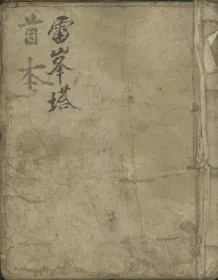 雷峯塔
首本